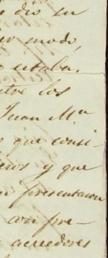 dio su
modo
citaba.
tre los
Juan Mn.
que consi
y que
presentacion
con pre
acreedores